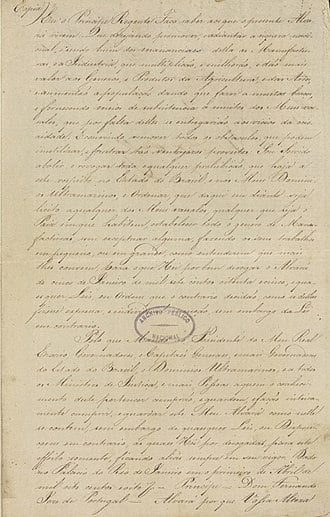 Copia
Eu o Principe Regente Faço saber aos que o presente Alva-
rá virem: Que desejando promover, e adiantar a riqueza nacio-
nal, e sendo hum dos mananciaes della as Manufactu-
ras e a Industria que multiplicão, e melhorão, e dão mais
valor aos Generos e Productos da Agricultura, e das Artes
e augmentão a população dando que fazer a muitos braços,
e fornecendo meios de subsistencia a muitos dos Meus vassa-
los, que por falta delles se entregarião aos vicios da ocio-
sidade: E convindo remover todos os obstaculos que podem
inutilisar, e frustrar tão vantajozos proveitos: Sou Servido
abolir, e revogar toda e qualquer prohibição, que haja a
este respeito no Estado do Brasil, e nos Meus Domini-
os Ultramarinos, e Ordenar, que daqui em diante seja
licito a qualquer dos Meus vassallos, qualquer que seja o
Paiz em que habitem, estabelecer todo o genero de Manu-
facturas sem exceptuar alguma, fazendo os seus trabalhos
em pequeno, ou em grande, como entenderem que mais
lhes convem, Para o que Hei por bem derogar o Alvará
de cinco de Janeiro de mil sete centos oitenta e cinco, e qua-
esquer Leis, ou Ordens que o contrario decidão, como se dellas
fizesse expressa, e individual menção, sem embargo da Lei
em contrario.
ARCHIVO PUBLICO
NACIONAL
Pelo que Mando ao Presidente do Meu Real
Erario, Governadores, e Capitães Generaes, e mais Governadores
do Estado do Brasil, e Dominios Ultramarinos, e a todos
os Ministros de Justiça, e mais Pessoas, a quem o conheci-
mento deste pertencer, cumprão, e guardem, e fação inteira-
mente cumprir, e guardar este Meu Alvará como nelle
se contem, sem embargo de quaesquer Leis, ou Disposi-
ções em contrario, as quaes Hei por derogadas para este
effeito somente, ficando alias sempre em seu vigor. Dado
no Palacio do Rio de Janeiro em o primeiro de Abril de
mil oito centos e oito = Principe = Dom Fernando
Jose de Portugal = Alvará por que Vossa Alteza